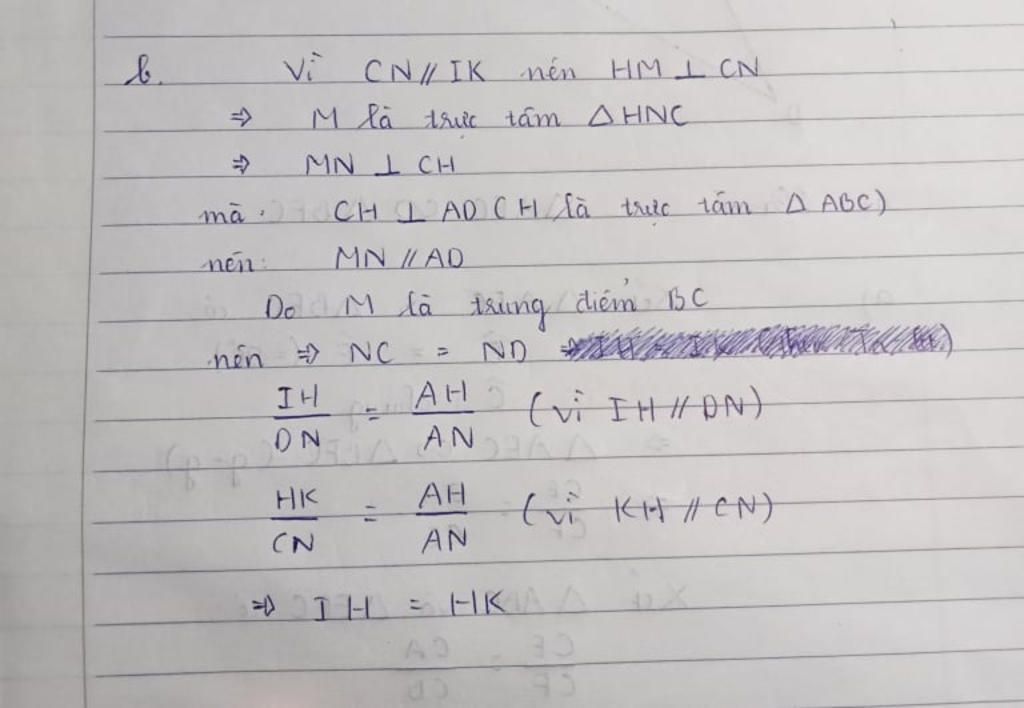 b. Vì CN // IK nên HM ⊥ CN
⇒ M là trực tâm △HNC
⇒ MN ⊥ CH
mà: CH ⊥ AD (H là trực tâm △ABC)
nên: MN // AD
Do M là trung điểm BC
nên ⇒ NC = ND
IH/DN = AH/AN (vì IH // DN)
HK/CN = AH/AN (vì KH // CN)
⇒ IH = HK